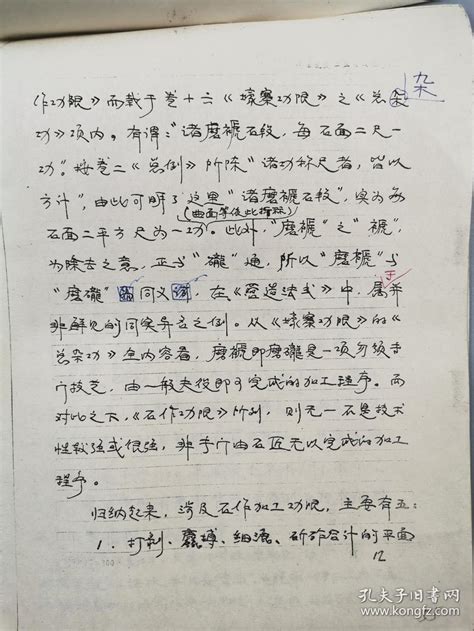 杂
作功限》而载于卷十六《壕寨功限》之《总杂
功》项内。有谓：“诸磨褫石段，每石面二尺一
功”。按卷二《总例》所陈“诸功称尺者，皆以
方计”，由此可明了这里“诸磨褫石段”，实为每
(曲面等仿此折除)
石面二平方尺为一功。此外，“磨褫”之“褫”，
为除去之意，正与“礲”通，所以“磨褫”与
“磨礲”同义，在《营造法式》中，属于并
非鲜见的同实异名之例。从《壕寨功限》的《
总杂功》全内容看，磨褫即磨礲是一项勿须专
门技艺，由一般夫役即可完成的加工程序。而
对比之下，《石作功限》所列，则无一不是技术
性较强或很强，非专门由石匠无以完成的加工
程序。
归纳起来，涉及石作加工功限，主要有五：
1．打剥、麤搏、细漉、斫砟合计的平面
12
孔夫子旧书网
kongfz.com